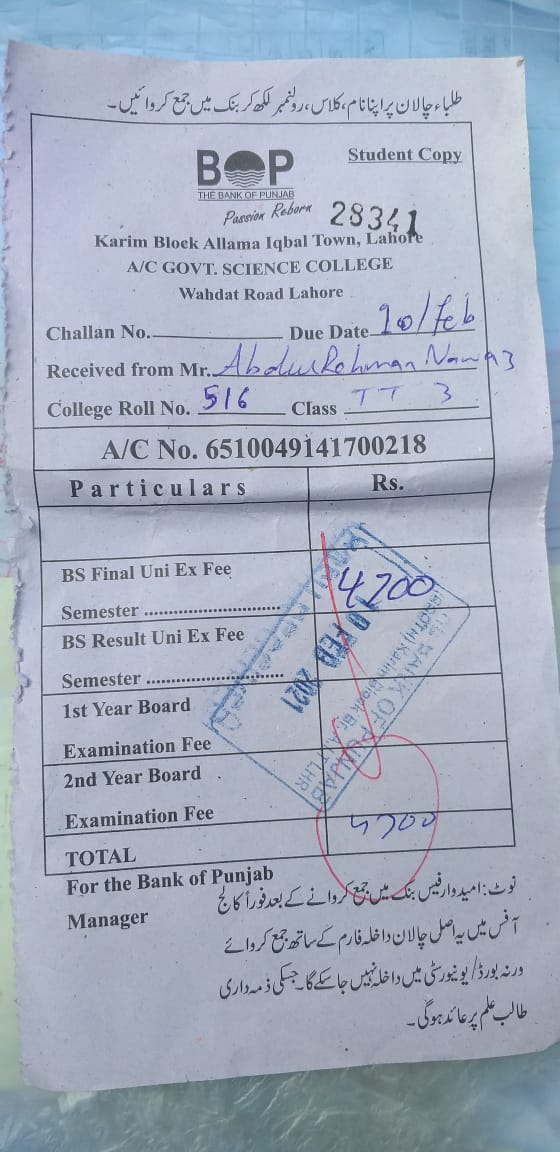 طلباء چالان پر اپنا نام، کلاس، رولنمبر لکھ کر بنک میں جمع کروائیں۔
BOP
Student Copy
THE BANK OF PUNJAB
Passion Reborn
28341
Karim Block Allama Iqbal Town, Lahore
A/C GOVT. SCIENCE COLLEGE
Wahdat Road Lahore
Challan No. Due Date 10/Feb
Received from Mr. Abdul Rehman Nawaz
College Roll No. 516 Class TT 3
A/C No. 6510049141700218
Particulars Rs.
BS Final Uni Ex Fee
4700
Semester ..............................
BS Result Uni Ex Fee
10 FEB 2021
Semester ..............................
1st Year Board
Examination Fee
2nd Year Board
Examination Fee
4700
TOTAL
BANK OF PUNJAB
Karim Block Br. A.I.T LHR
For the Bank of Punjab
Manager
نوٹ: امیدوار فیس بنک میں جمع کروانے کے بعد فوراً کالج
آفس میں یہ اصل چالان داخلہ فارم کے ساتھ جمع کروائے
ورنہ بورڈ/یونیورسٹی میں داخلہ نہیں جا سکے گا۔ جسکی ذمہ داری
طالب علم پر عائد ہوگی۔